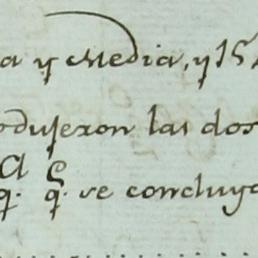 a y Media, y 15
odujeron las dos
q. q. se concluyo